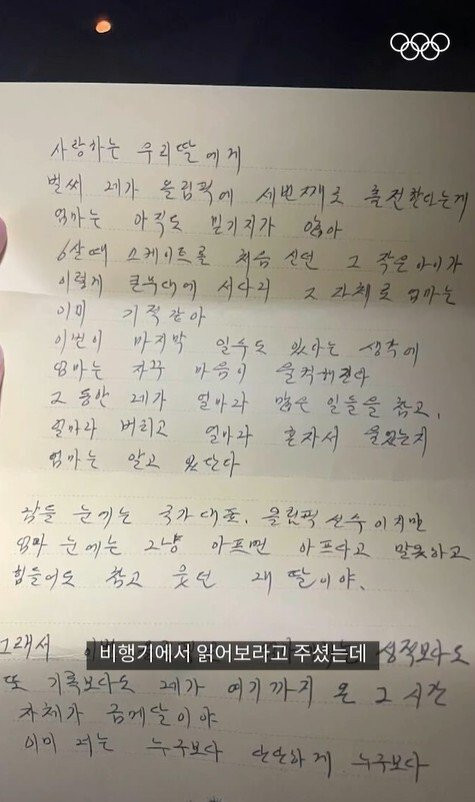 사랑하는 우리딸에게
벌써 네가 올림픽에 세번째로 출전한다는게
엄마는 아직도 믿기지가 않아
6살때 스케이트를 처음 신던 그 작은아이가
이렇게 큰무대에 서다니 그 자체로 엄마는
이미 기적같아
이번이 마지막 일수도 있다는 생각에
엄마는 자꾸 마음이 울컥해진다
그동안 네가 얼마나 많은 일들을 참고,
얼마나 버리고 얼마나 혼자서 울었는지
엄마는 알고 있단다
남들 눈에는 국가대표, 올림픽 선수이지만
엄마 눈에는 그냥 아프면 아프다고 말못하고
힘들어도 참고 웃던 내 딸이야.
그래서 성적보다도
비행기에서 읽어보라고 주셨는데
또 기록보다도 네가 여기까지 온 그 시간
자체가 금메달이야
이미 너는 누구보다 단단하게 누구보다